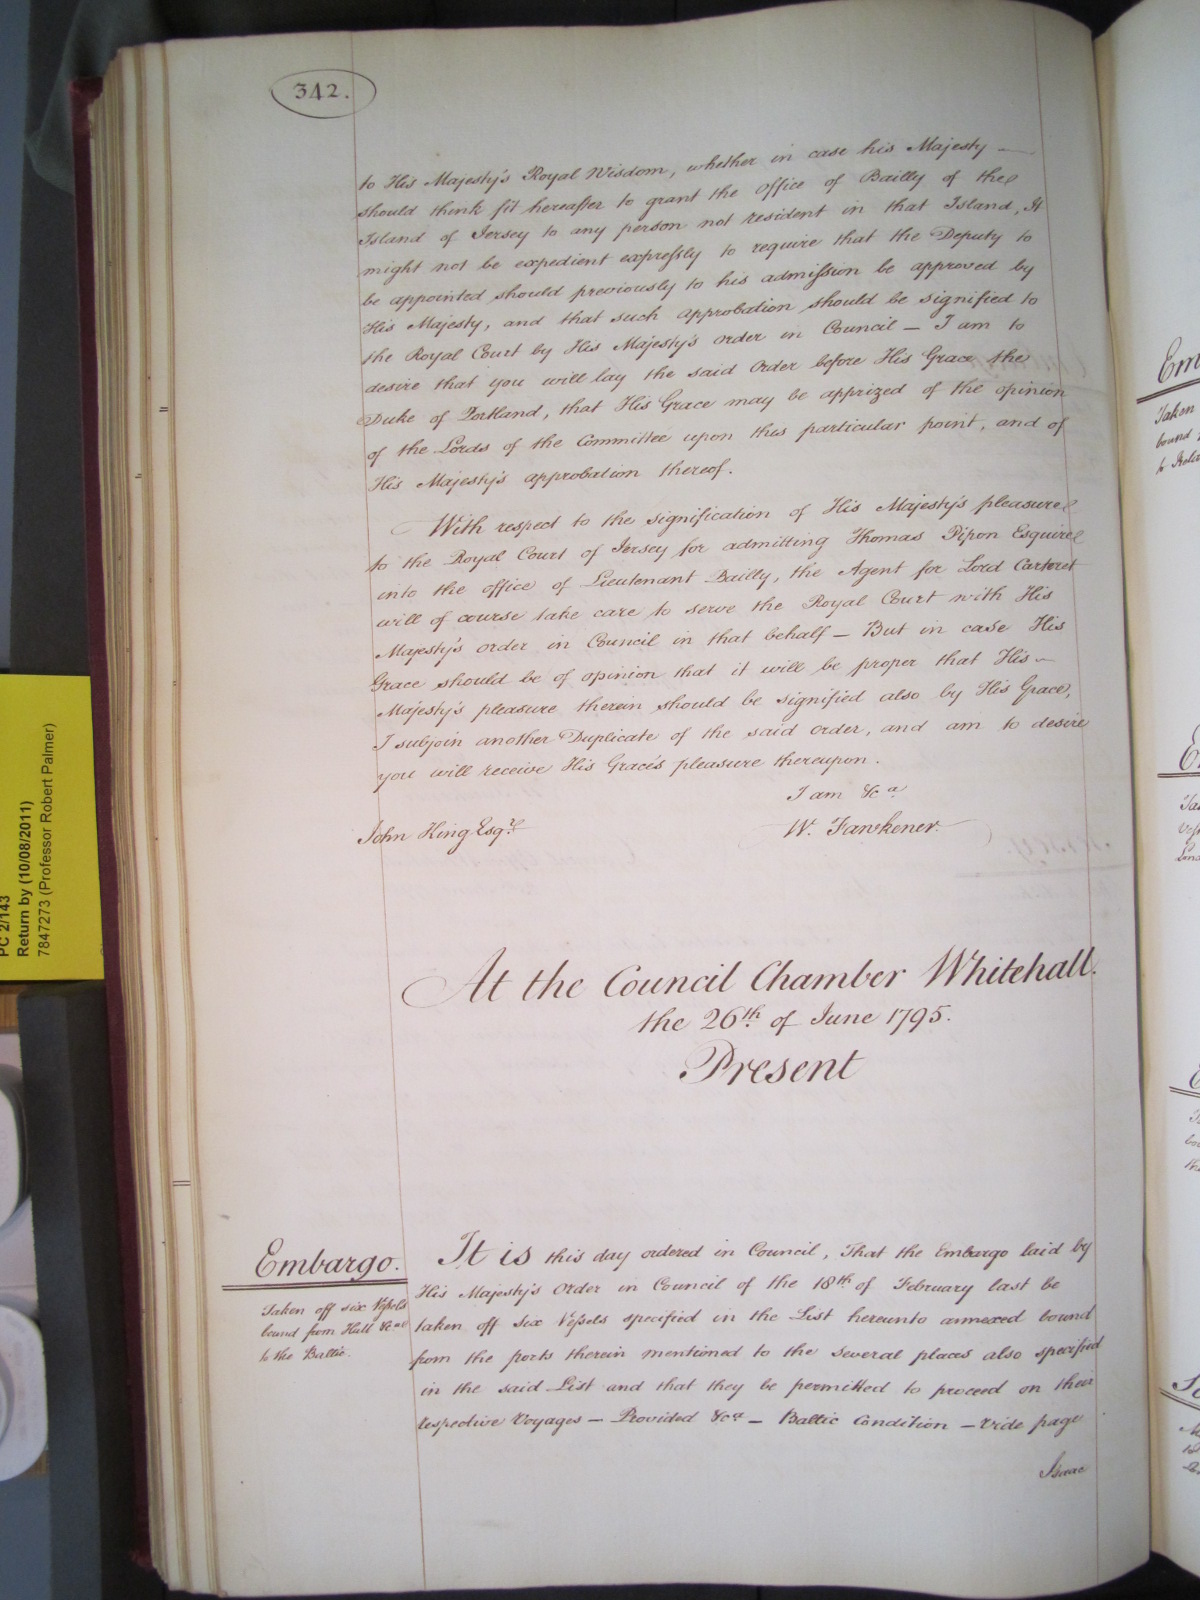 342.
to His Majesty's Royal Wisdom, whether in case his Majesty —
should think fit hereafter to grant the office of Bailly of the
Island of Jersey to any person not resident in that Island, It
might not be expedient expressly to require that the Deputy to
be appointed should previously to his admission be approved by
His Majesty, and that such approbation should be signified to
the Royal Court by His Majesty's order in Council — I am to
desire that you will lay the said Order before His Grace the
Duke of Portland, that His Grace may be apprized of the opinion
of the Lords of the Committee upon this particular point, and of
His Majesty's approbation thereof.
With respect to the signification of His Majesty's pleasure
to the Royal Court of Jersey for admitting Thomas Pipon Esquire
into the office of Lieutenant Bailly, the Agent for Lord Carteret
will of course take care to serve the Royal Court with His
Majesty's order in Council in that behalf — But in case His
Grace should be of opinion that it will be proper that His —
Majesty's pleasure therein should be signified also by His Grace,
I subjoin another Duplicate of the said order, and am to desire
you will receive His Grace's pleasure thereupon.
I am &ca
John King Esqre.
W. Fawkener.
At the Council Chamber Whitehall.
the 26th of June 1795.
Present
Embargo.
Taken off six Vessels
bound from Hull &ca
to the Baltic.
It is this day ordered in Council, That the Embargo laid by
His Majesty's Order in Council of the 18th of February last be
taken off six Vessels specified in the List hereunto annexed bound
from the ports therein mentioned to the several places also specified
in the said List and that they be permitted to proceed on their
respective Voyages — Provided &ca — Baltic Condition — vide page
Isaac
PC 2/143
Return by (10/08/2011)
7847273 (Professor Robert Palmer)
Taken
bound